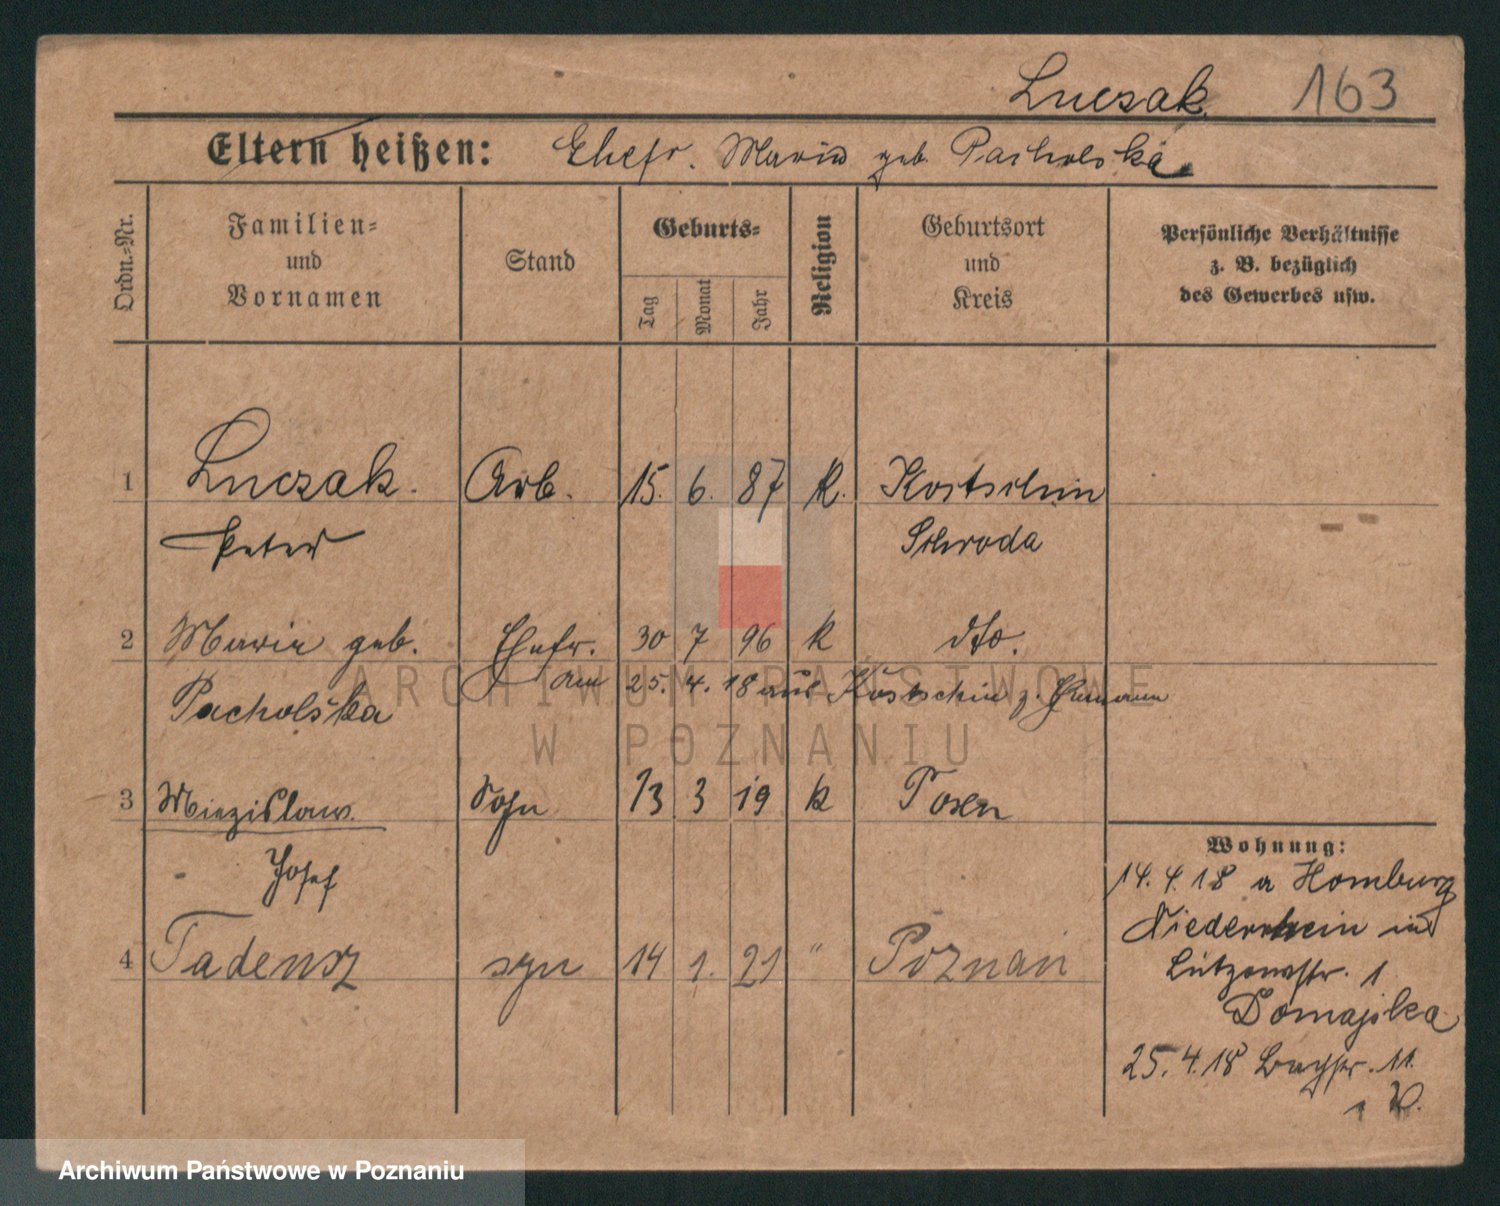 Luczak. 163
Eltern heißen: Ehefr. Maria geb. Pacholska
Ordn.=Nr.
Familien=
und
Vornamen
Stand
Geburts=
Tag
Monat
Jahr
Religion
Geburtsort
und
Kreis
Persönliche Verhältnisse
z. B. bezüglich
des Gewerbes usw.
1 Luczak. Arb. 15. 6. 87 K. Kostschin
Peter Schroda
2 Maria geb. Ehefr. 30 7 96 k dto.
Pacholska am 25. 4. 18 aus Kostschin z. Ehemann
3 Miezislaw Sohn 13 3 19 k Posen
Josef
4 Tadeusz syn 14 1. 21 " Poznań
Wohnung:
14. 4. 18 a Homburg
Niederrhein in
Lützowstr. 1
25. 4. 18 11.
ARCHIWUM PAŃSTWOWE
W POZNANIU
Archiwum Państwowe w Poznaniu